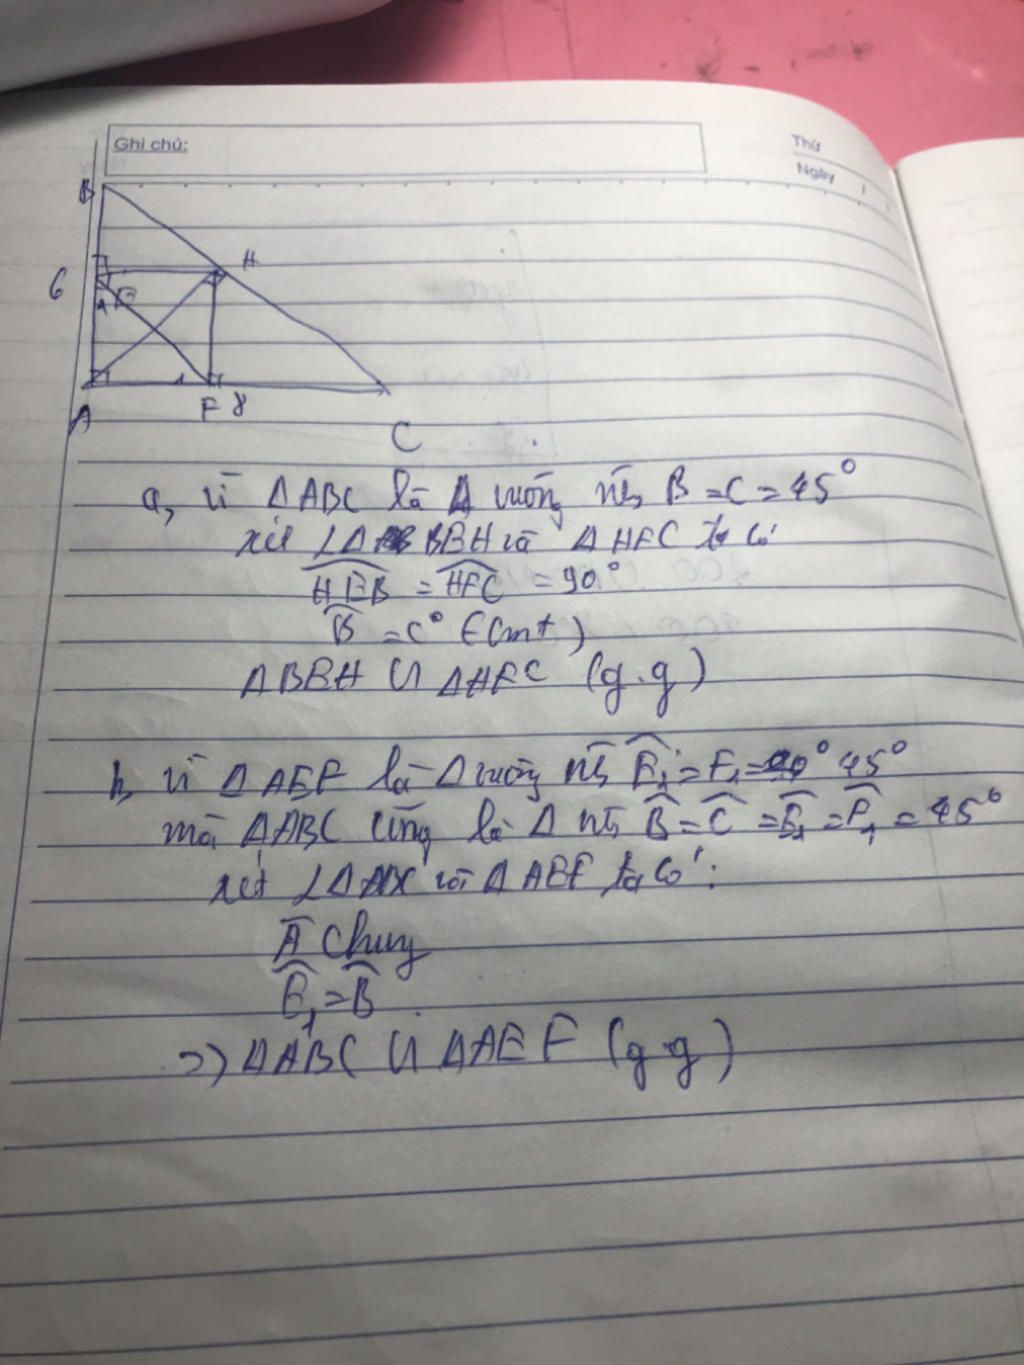 Ghi chú:
Thứ
Ngày
B
6
H
E
A
F 8
C
a, vì ΔABC là Δ vuông nên B = C = 45°
xét ΔBEH và ΔHFC ta có
HEB = HFC = 90°
B = C° (cmt)
ΔBEH ᔕ ΔHFC (g.g)
b, vì ΔAEF là Δ vuông nên E₁ = F₁ = 45°
mà ΔABC cũng là Δ nên B = C = E₁ = F₁ = 45°
xét ΔABC và ΔAEF ta có :
A chung
E₁ = B
=> ΔABC ᔕ ΔAEF (g.g)